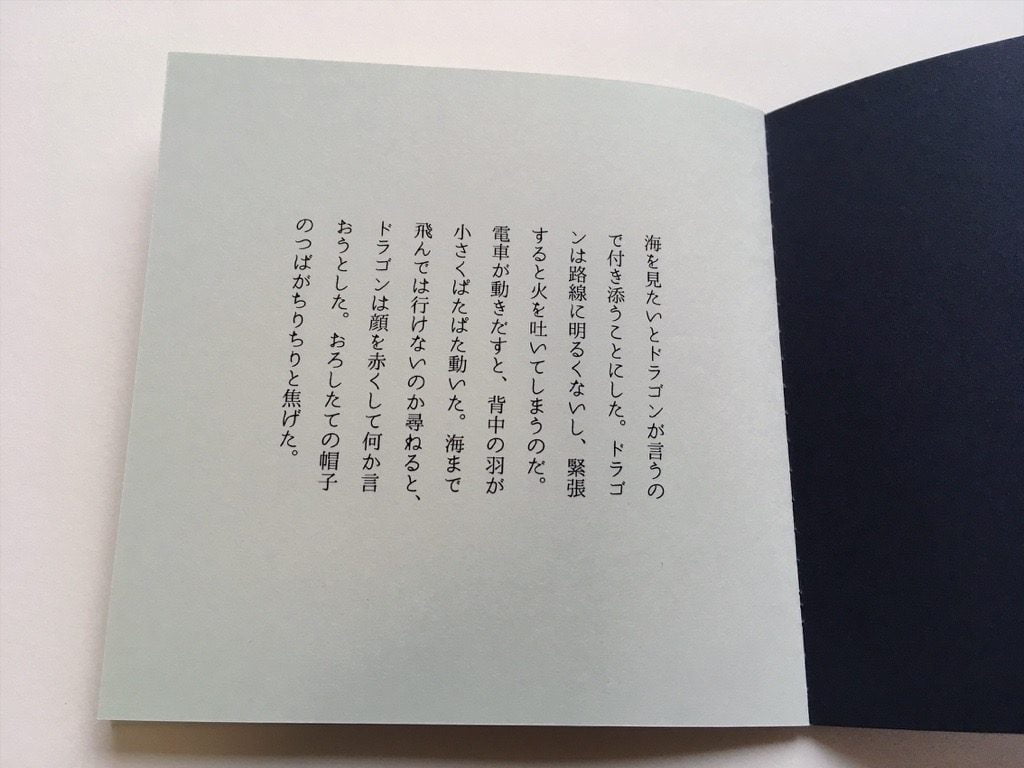 海を見たいとドラゴンが言うの
で付き添うことにした。ドラゴ
ンは路線に明るくないし、緊張
すると火を吐いてしまうのだ。
電車が動きだすと、背中の羽が
小さくぱたぱた動いた。海まで
飛んでは行けないのか尋ねると、
ドラゴンは顔を赤くして何か言
おうとした。おろしたての帽子
のつばがちりちりと焦げた。